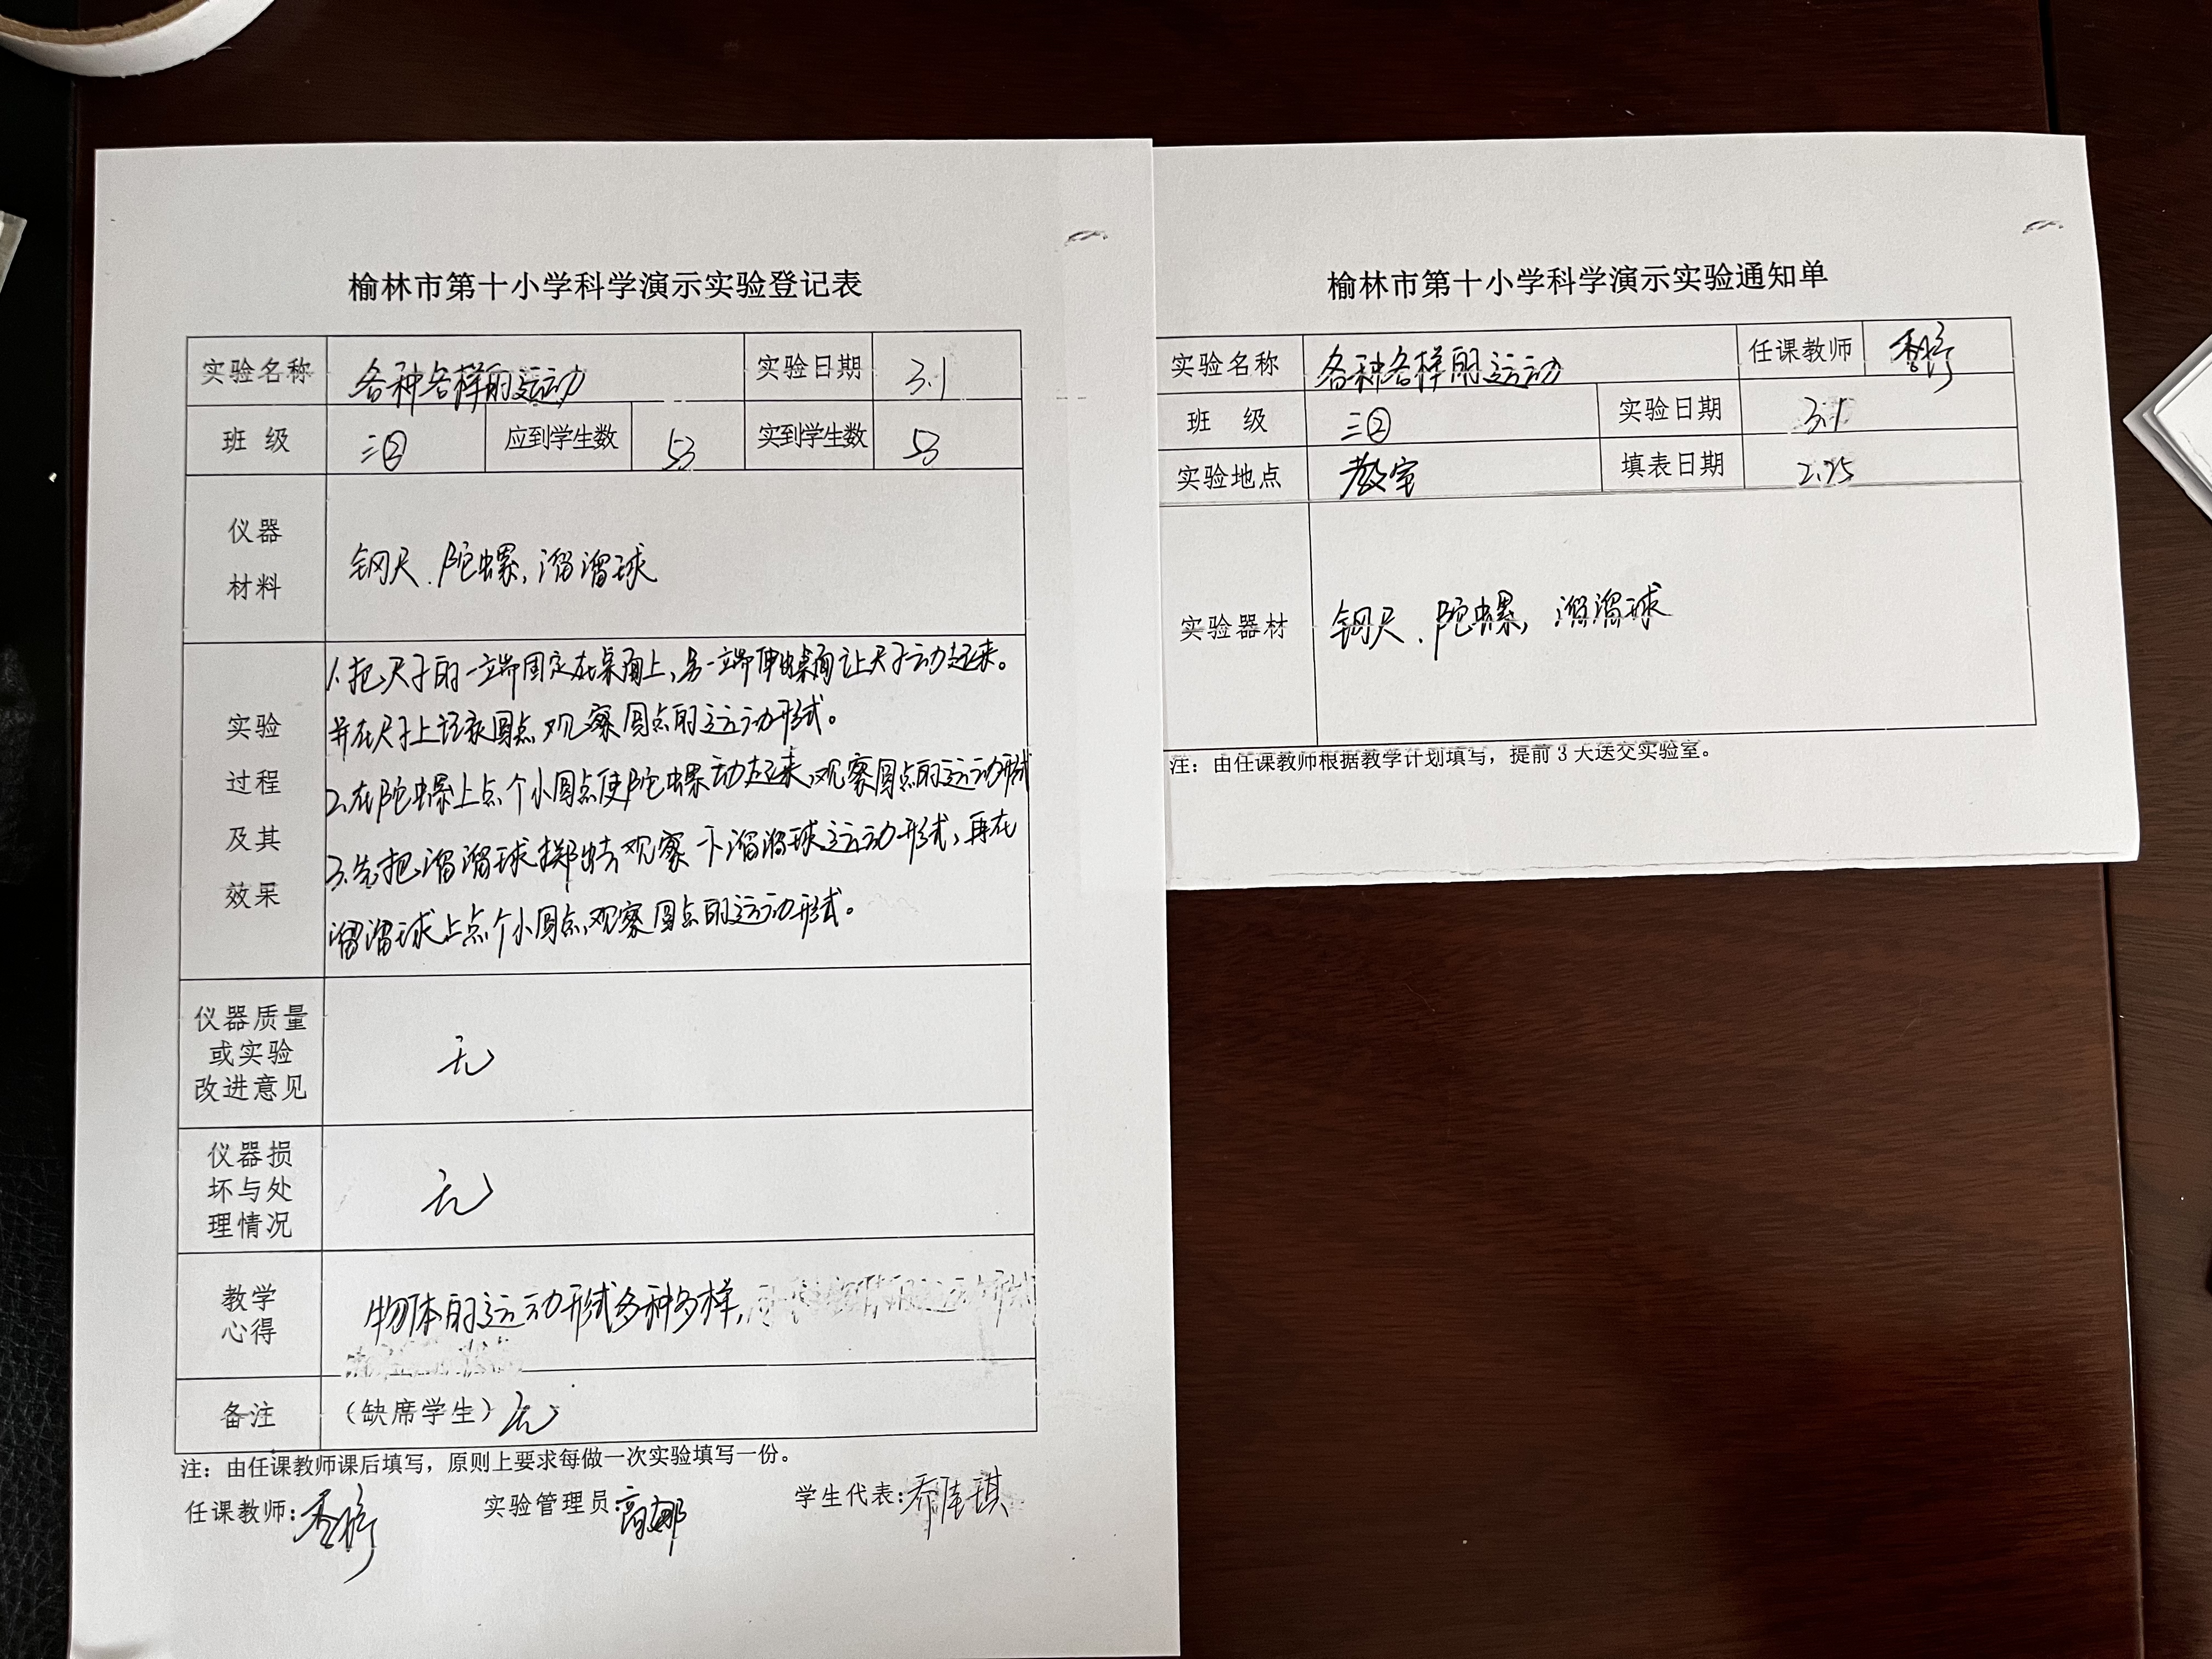 榆林市第十小学科学演示实验登记表
实验名称 各种各样的运动 实验日期 3.1
班 级 三② 应到学生数 53 实到学生数 53
仪器
材料
钢尺、陀螺,溜溜球
实验
过程
及其
效果
1.把尺子的一端固定在桌面上,另一端伸出桌面让尺子动起来。
并在尺子上记录圆点,观察圆点的运动形式。
2.在陀螺上点个小圆点使陀螺动起来,观察圆点的运动形式
3.先把溜溜球掷出去观察一下溜溜球运动形式,再在
溜溜球上点个小圆点,观察圆点的运动形式。
仪器质量
或实验
改进意见
无
仪器损
坏与处
理情况
无
教学
心得
物体的运动形式多种多样,
备注 (缺席学生)无
注：由任课教师课后填写，原则上要求每做一次实验填写一份。
任课教师: 实验管理员:高娜 学生代表:乔佳琪
榆林市第十小学科学演示实验通知单
实验名称 各种各样的运动 任课教师
班 级 三② 实验日期 3.1
实验地点 教室 填表日期 2.25
实验器材 钢尺、陀螺,溜溜球
注：由任课教师根据教学计划填写，提前3天送交实验室。